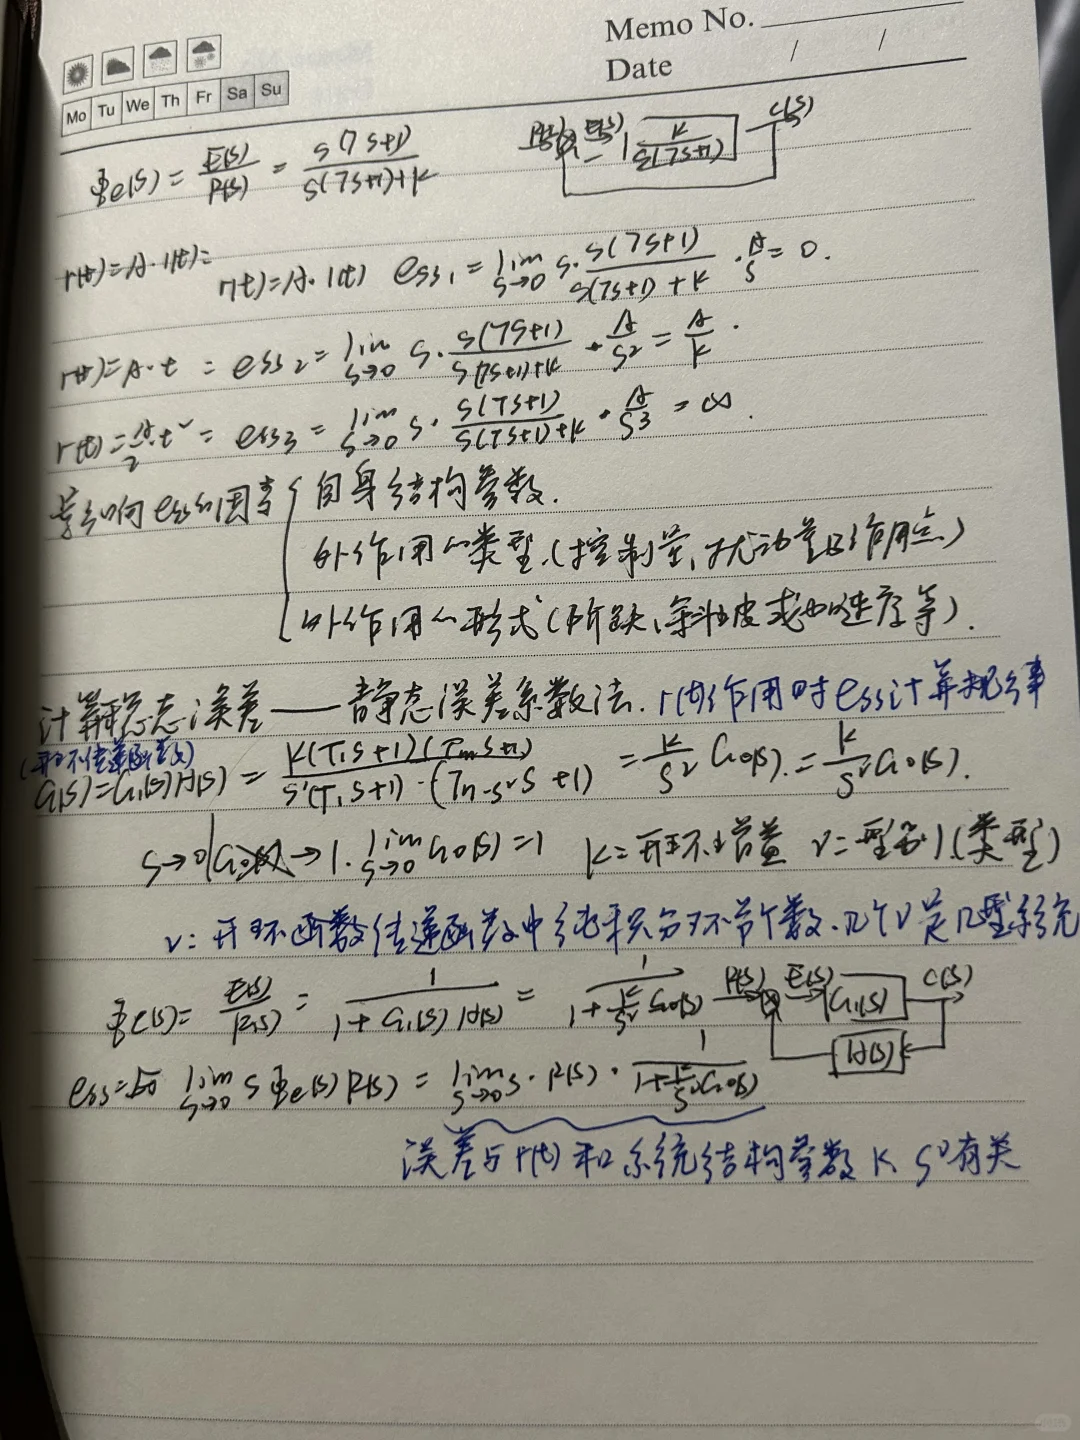 Memo No.
Date / /
Mo Tu We Th Fr Sa Su
Φe(s) = E(s)/R(s) = s(Ts+1)/(s(Ts+1)+K)
R(s) E(s) − K/(s(Ts+1)) C(s)
r(t)=A·1(t)=
r(t)=A·1(t) ess1 = lim s→0 s· s(Ts+1)/(s(Ts+1)+K) · A/s = 0.
r(t)=A·t = ess2 = lim s→0 s· s(Ts+1)/(s(Ts+1)+K) · A/s² = A/K.
r(t)=A/2·t² = ess3 = lim s→0 s· s(Ts+1)/(s(Ts+1)+K) · A/s³ = ∞.
影响ess的因素 { 自身结构参数.
外作用的类型.(控制量,扰动量及作用点)
外作用的形式(阶跃、斜坡或加速度等).
计算稳态误差——静态误差系数法. r(t)作用时ess计算规律
(开环传递函数)
G(s)=G1(s)H(s) = K(T1s+1)(Tms+1)/(s^ν(T1s+1)·(Tn-νs+1)) = K/s^ν G0(s). = K/s^ν G0(s).
s→0 G0(s)→1. lim s→0 G0(s)=1 K=开环增益 ν=型别(类型)
ν: 开环函数传递函数中纯积分环节个数.几个ν是几型系统
Φe(s)= E(s)/R(s) = 1/(1+G1(s)H(s)) = 1/(1+K/s^ν G0(s))
R(s) E(s) G1(s) C(s)
H(s)
ess= lim s→0 sΦe(s)R(s) = lim s→0 s·R(s)· 1/(1+K/s^ν G0(s))
误差与r(t)和系统结构参数K、s^ν有关